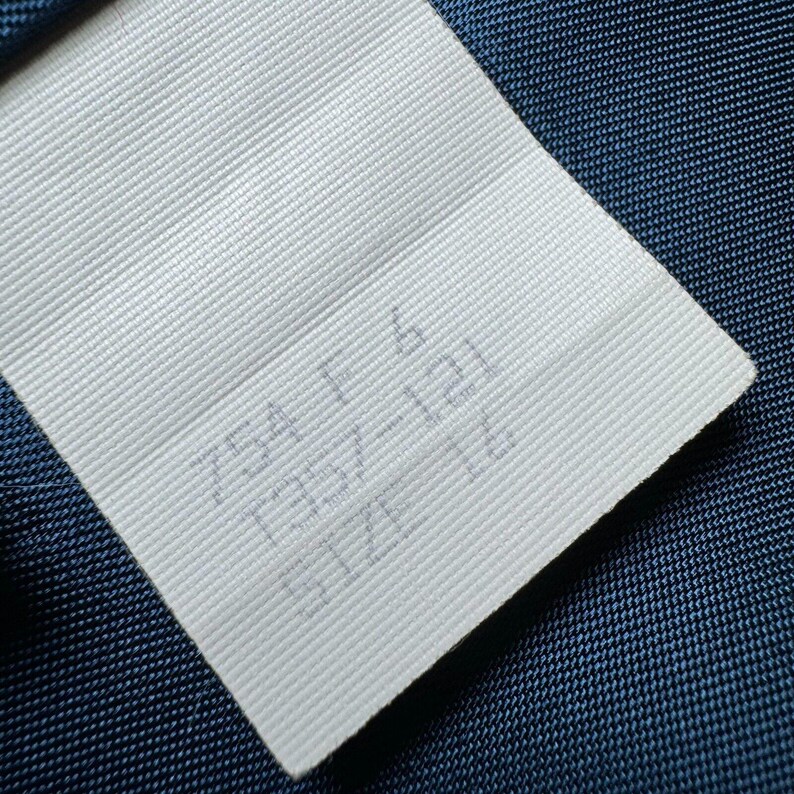 754 F 6
T357-121
SIZE 16